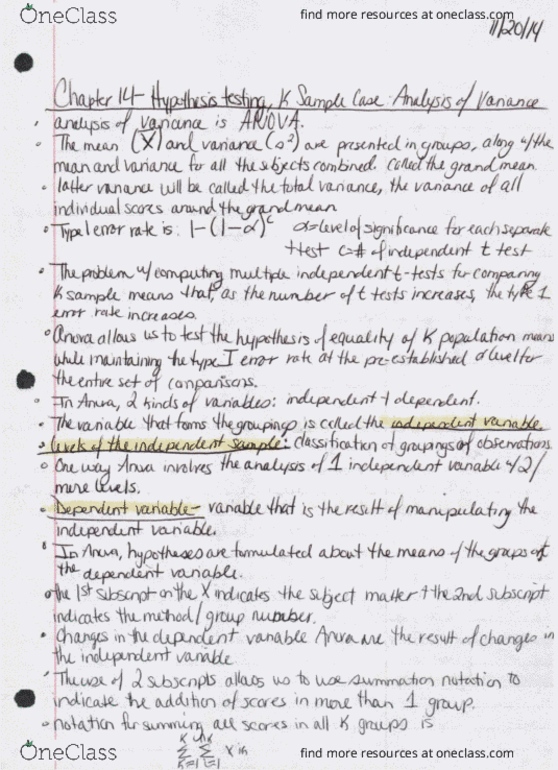 OneClass
find more resources at oneclass.com
11/20/14
Chapter 14- Hypothesis testing, K Sample Case: Analysis of Variance
analysis of variance is ANOVA.
• The mean (X̄) and variance (s²) are presented in groups, along w/the
mean and variance for all the subjects combined. Called the grand mean.
• latter variance will be called the total variance, the variance of all
individual scores around the grand mean
• Type 1 error rate is: 1-(1-α)ᶜ α=level of significance for each separate
t test c=# of independent t test
• The problem w/ computing multiple independent t-tests for comparing
K sample means that, as the number of t tests increases, the type 1
error rate increases.
• Anova allows us to test the hypothesis of equality of K population means
while maintaining the type I error rate at the pre-established α level for
the entire set of comparisons.
• In Anova, 2 kinds of variables: independent + dependent.
• The variable that forms the groupings is called the independent variable
• levels of the independent sample: classification of groupings of observations
• One way Anova involves the analysis of 1 independent variable w/2/
more levels.
• Dependent variable- variable that is the result of manipulating the
independent variable.
• In Anova, hypotheses are formulated about the means of the groups of
the dependent variable.
• the 1st subscript on the X indicates the subject matter + the 2nd subscript
indicates the method/group number.
• Changes in the dependent variable Anova are the result of changes in
the independent variable
• The use of 2 subscripts allows us to use summation notation to
indicate the addition of scores in more than 1 group.
• notation for summing all scores in all K groups is
K nk
Σ Σ X ik
K=1 i=1
OneClass
find more resources at oneclass.com